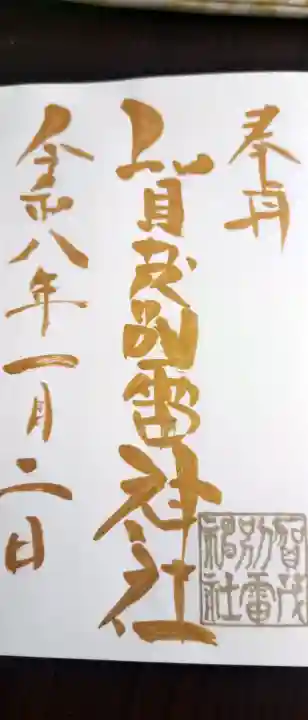 奉拝
賀茂別雷神社
令和八年一月二日
賀茂
別雷
神社